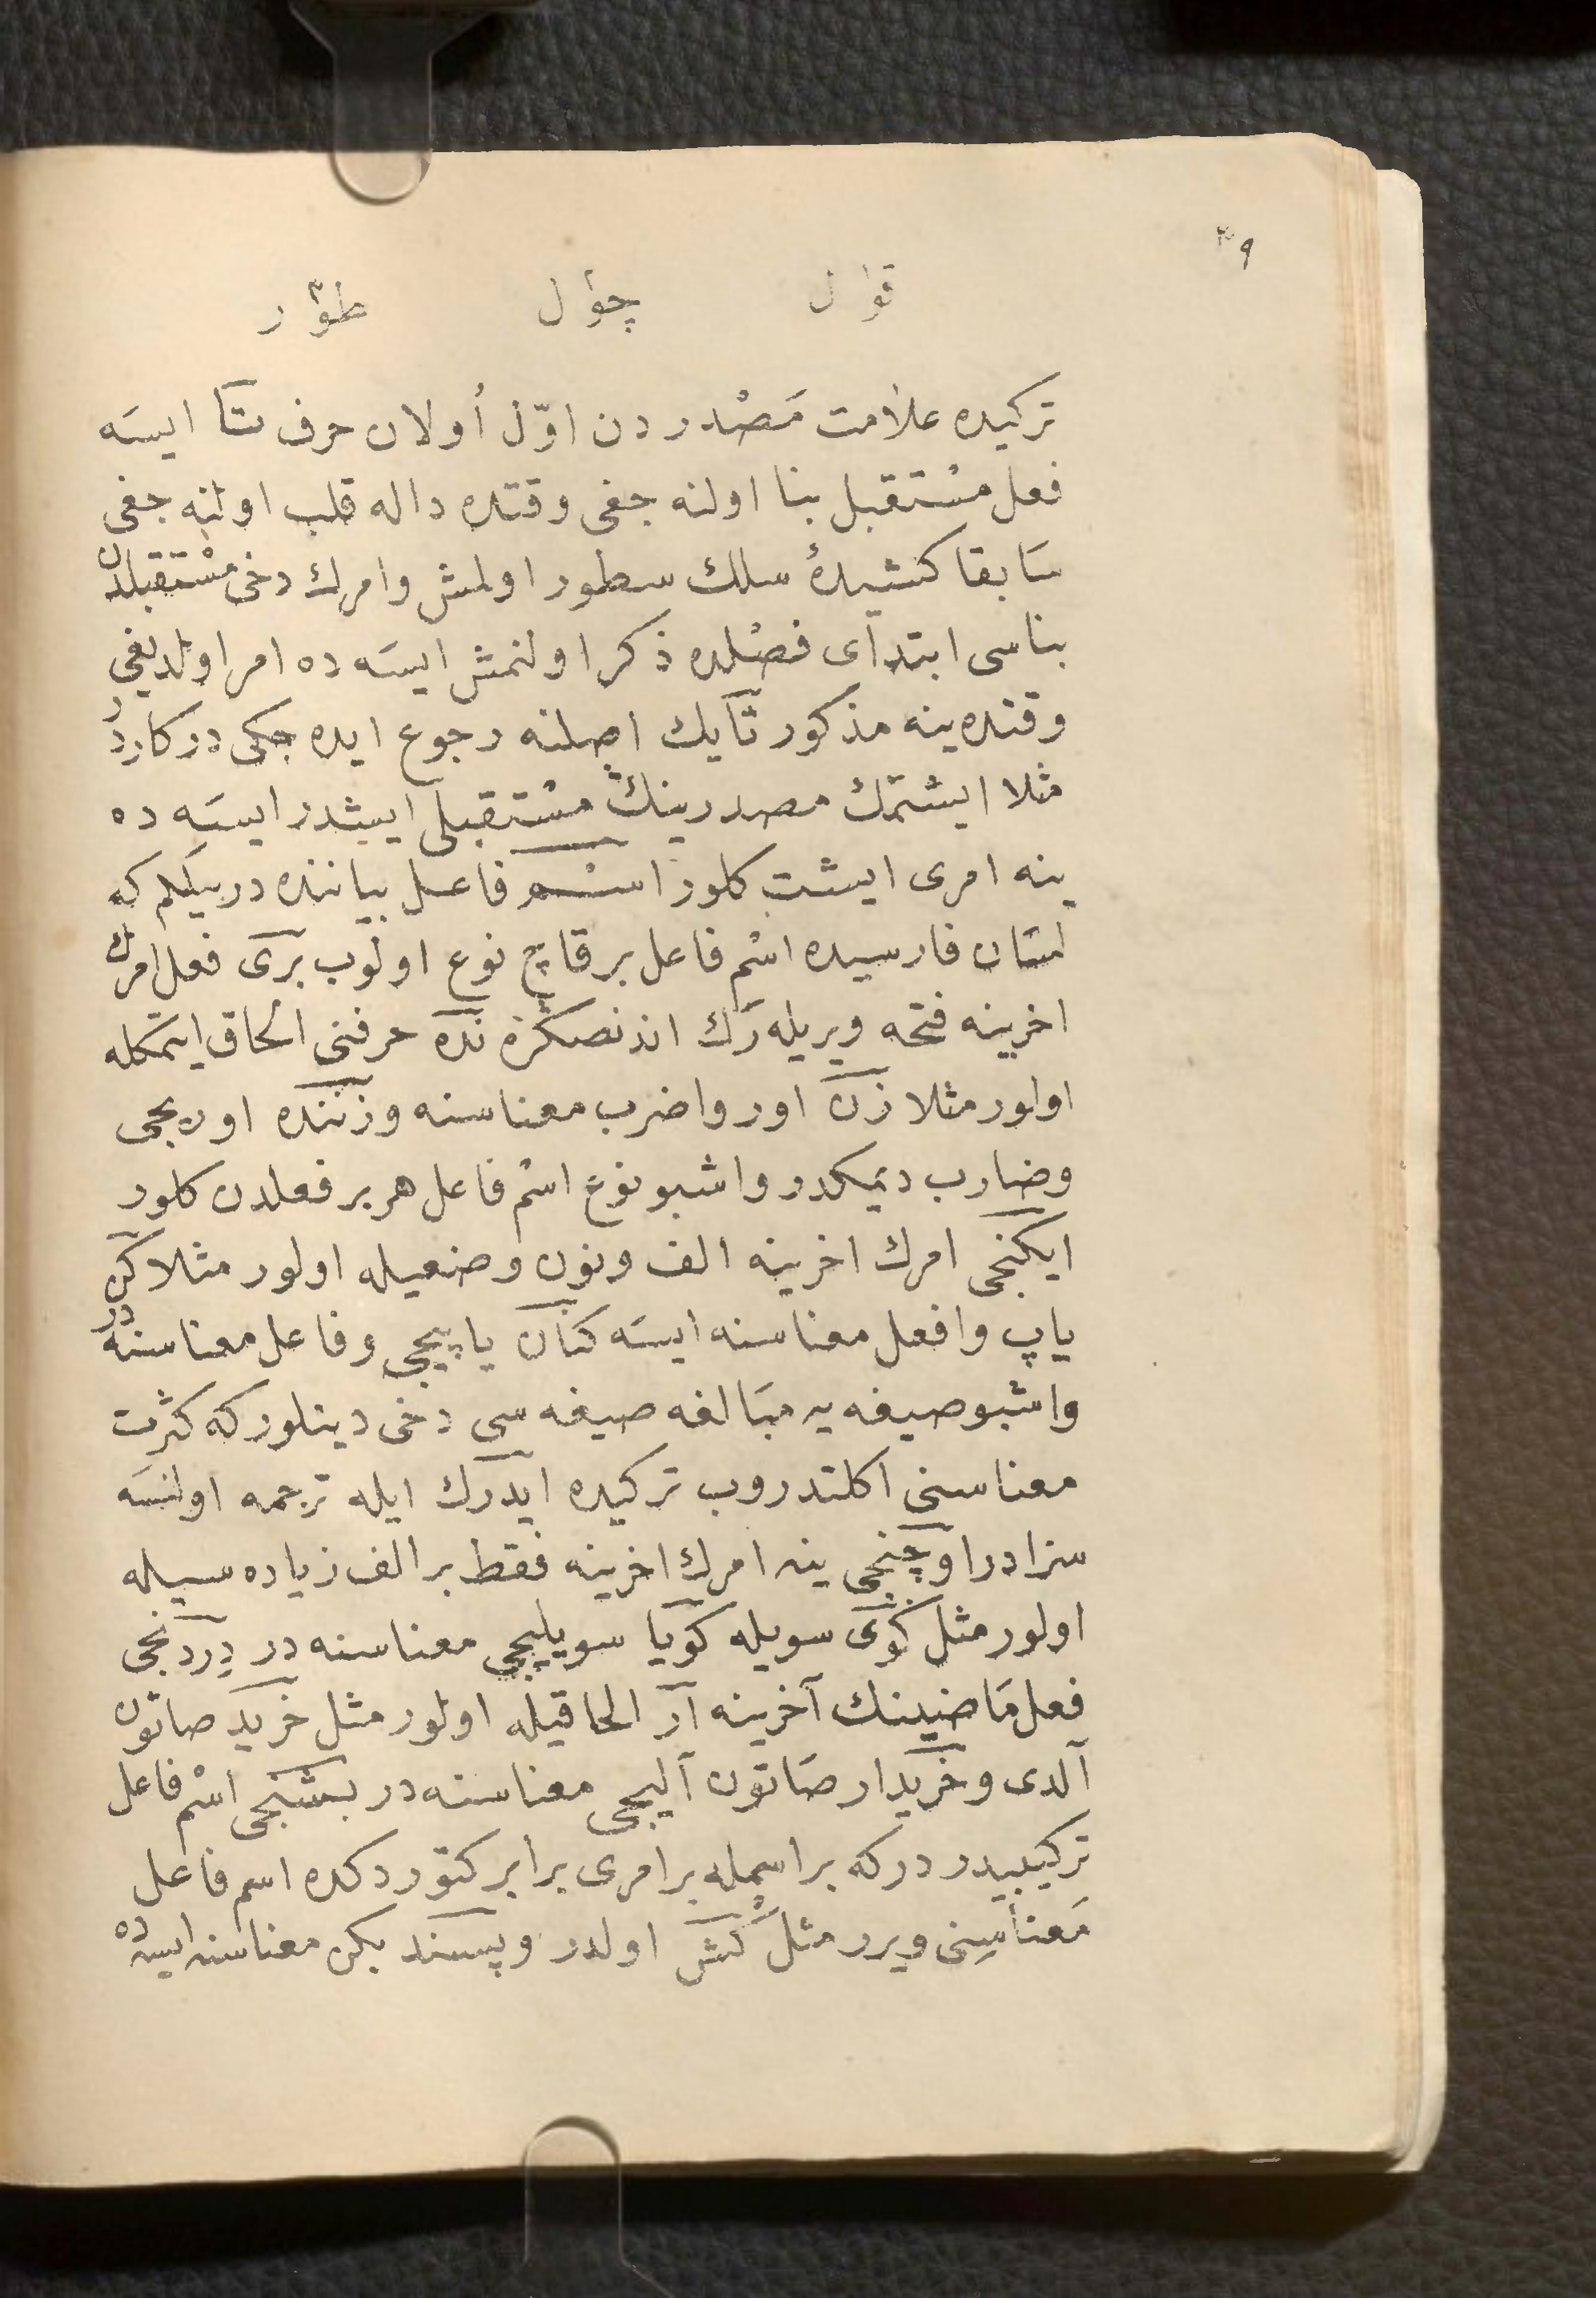 ٣٩
قوٰل چوٰل طوٰر
تركيده علامت مَصْدر دن اوّل أولان حرف تا ايسَه
فعل مسْتقبل بنا اولنه جغى وقتده داله قلب اولنه جغى
سَابقا كشيدهٔ سلك سطور اولمش وامرك دخى مسْتقبلدن
بناسى ابتداى فصْلده ذكر اولنمش ايسَه ده امر اولديغى
وقتده ينه مذكور تآيك اصلنه رجوع ايده جكى دركاردر
مثلا ايشتمك مصدرينك مسْتقبلى ايشدر ايسَه ده
ينه امرى ايشت كلور اسْم فاعل بياننده در بيلكم كه
لسَان فارسيده اسْم فاعل بر قاچ نوع اولوب برى فعل امرك
اخرينه فتحه ويريله رَك اندنصكره نده حرفنى الحاق ايتمكله
اولور مثلا زن اور واضرب معناسنه وزننده اوريجى
وضارب ديمكدر واشبو نوع اسْم فاعل هر بر فعلدن كلور
ايكنجى امرك اخرينه الف ونون وضعيله اولور مثلا كن
ياپ وافعل معناسنه ايسَه كنان ياپيجى وفاعل معناسنه در
واشبو صيغه يه مبَالغه صيغه سى دخى دينلور كه كثرت
معناسنى اكلتدروب تركيده ايدرك ايله ترجمه اولنسَه
سزادر اوچنجى ينه امرك اخرينه فقط بر الف زياده سيله
اولور مثل كوى سويله كويا سويليجى معناسنه در دِردنجى
فعل مَاضينك آخرينه آر الحاقيله اولور مثل خريد صاتون
آلدى وخريدار صَاتون آليجى معناسنه در بشنجى اسْم فاعل
تركيبيدر در كه بر اسمله بر امرى برابر كتوردكده اسم فاعل
مَعناسِنى ويرر مثل كَش اولدر وپسند بكن معناسنه ايسه ده